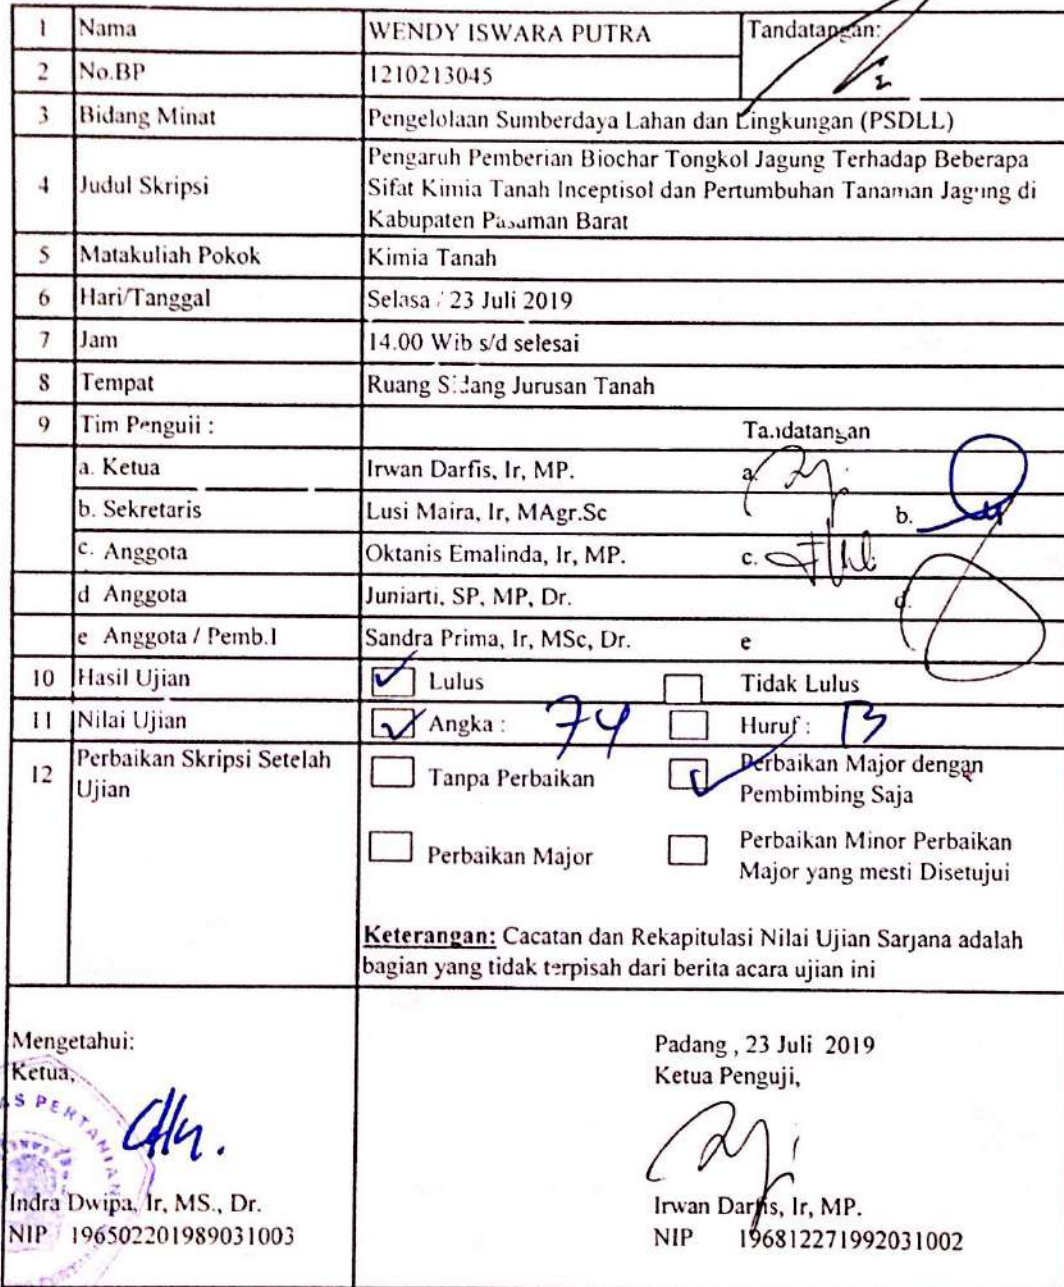 1 Nama WENDY ISWARA PUTRA Tandatangan:
2 No.BP 1210213045
3 Bidang Minat Pengelolaan Sumberdaya Lahan dan Lingkungan (PSDLL)
4 Judul Skripsi Pengaruh Pemberian Biochar Tongkol Jagung Terhadap Beberapa
Sifat Kimia Tanah Inceptisol dan Pertumbuhan Tanaman Jagung di
Kabupaten Pasaman Barat
5 Matakuliah Pokok Kimia Tanah
6 Hari/Tanggal Selasa / 23 Juli 2019
7 Jam 14.00 Wib s/d selesai
8 Tempat Ruang Sidang Jurusan Tanah
9 Tim Penguji : Tandatangan
a. Ketua Irwan Darfis, Ir, MP. a.
b. Sekretaris Lusi Maira, Ir, MAgr.Sc b.
c. Anggota Oktanis Emalinda, Ir, MP. c.
d Anggota Juniarti, SP, MP, Dr. d.
e Anggota / Pemb.I Sandra Prima, Ir, MSc, Dr. e
10 Hasil Ujian Lulus Tidak Lulus
11 Nilai Ujian Angka : 74 Huruf : B
12 Perbaikan Skripsi Setelah
Ujian
Tanpa Perbaikan Perbaikan Major dengan
Pembimbing Saja
Perbaikan Major Perbaikan Minor Perbaikan
Major yang mesti Disetujui
Keterangan: Cacatan dan Rekapitulasi Nilai Ujian Sarjana adalah
bagian yang tidak terpisah dari berita acara ujian ini
Mengetahui:
Ketua,
AS PERTANIAN
Indra Dwipa, Ir, MS., Dr.
NIP 196502201989031003
Padang , 23 Juli 2019
Ketua Penguji,
Irwan Darfis, Ir, MP.
NIP 196812271992031002